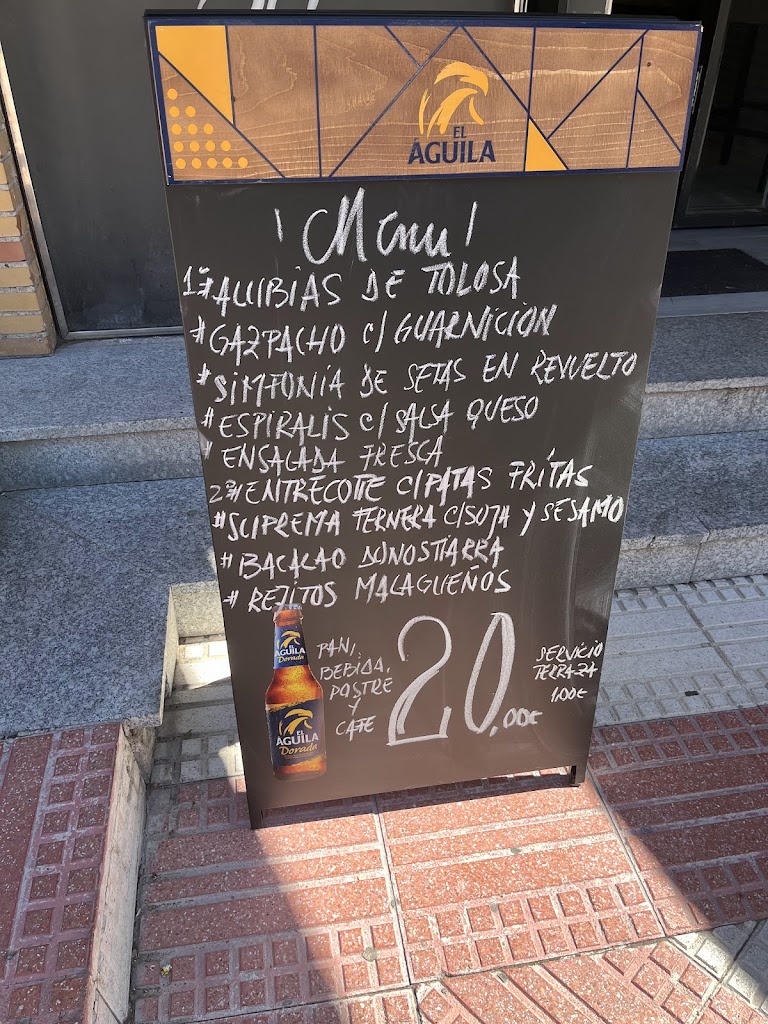 EL
ÁGUILA
¡Menu!
1º#ALUBIAS DE TOLOSA
#GAZPACHO C/GUARNICIÓN
#SIMFONÍA DE SETAS EN REVUELTO
#ESPIRALIS C/SALSA QUESO
# ENSALADA FRESCA
2º#ENTRECOTTE C/PATAS FRITAS
#SUPREMA TERNERA C/SOJA Y SESAMO
#BACALAO DONOSTIARRA
# REJITOS MALAGUEÑOS
PAN,
BEBIDA,
POSTRE
Y
CAFE
20,00€
SERVICIO
TERRAZA
1,00€
EL
ÁGUILA
Dorada
EL
ÁGUILA
Dorada